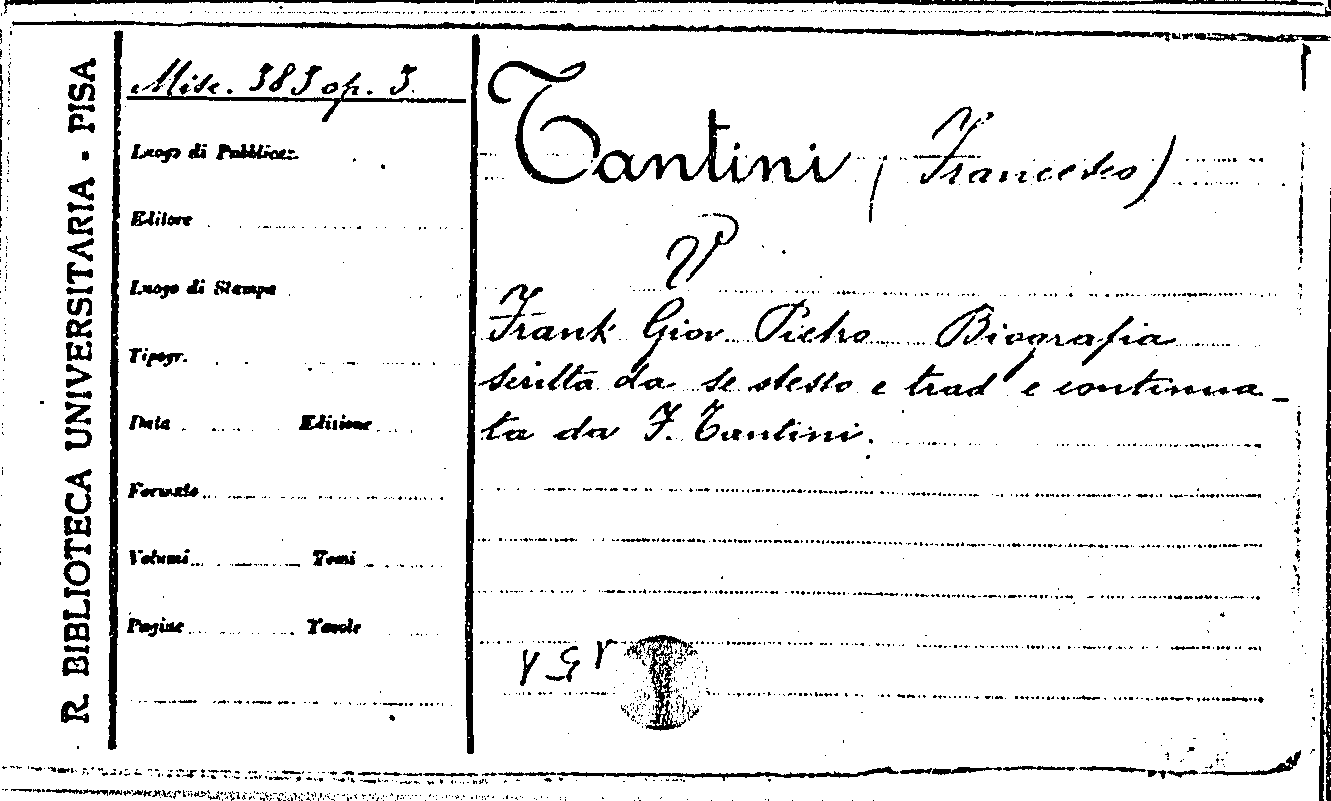 R. BIBLIOTECA UNIVERSITARIA - PISA
Misc. 383 op. 3.
Luogo di Pubblicaz.
Editore
Luogo di Stampa
Tipogr.
Data Edizione
Formato
Volumi Tomi
Pagine Tavole
Tantini (Francesco)
Frank Giov. Pietro Biografia
scritta da se stesso e trad e continua_
ta da F. Tantini.